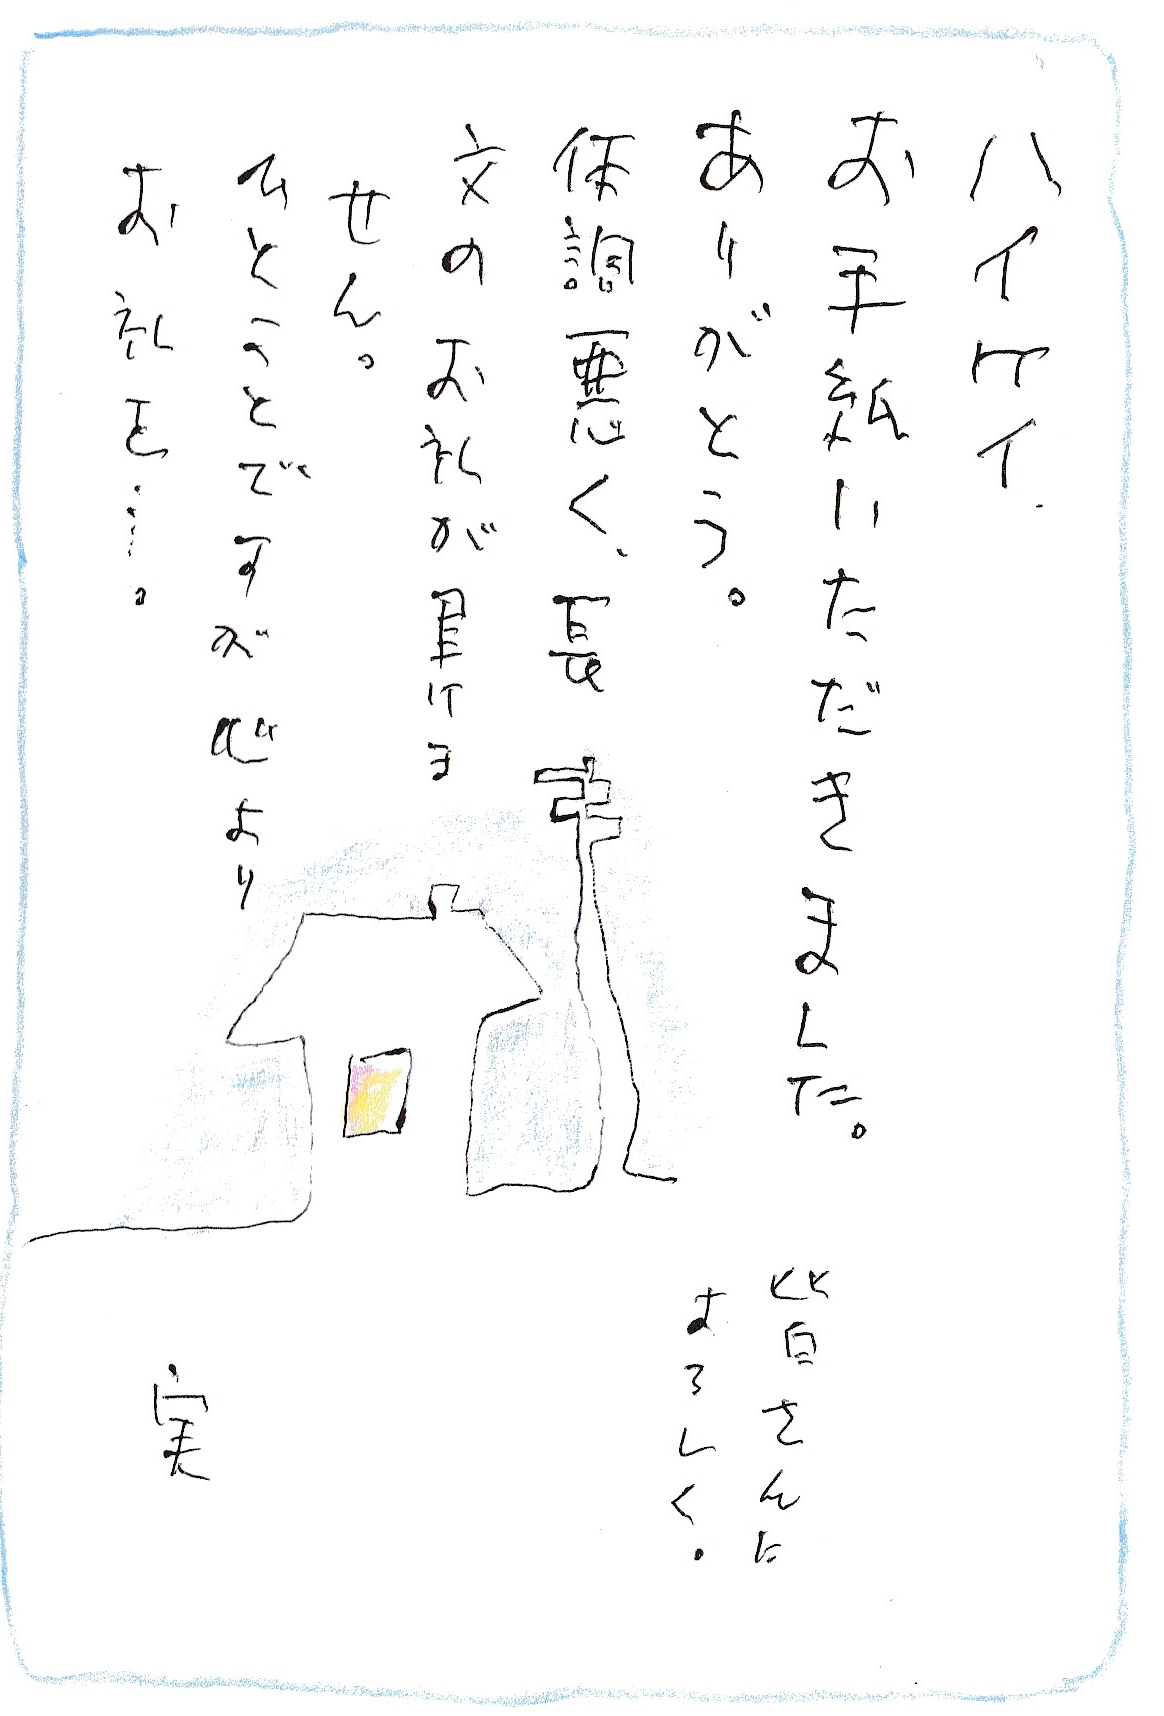 ハイケイ.
お手紙いただきました。
ありがとう。
体調悪く、長
文のお礼が書けま
せん。
ひとことですが心より
お礼を……。
皆さんに
よろしく.
実